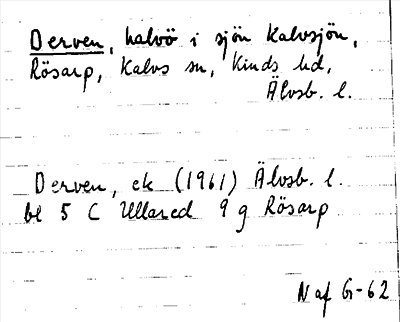 Derven, halvö i sjön Kalvsjön,
Rösarp, Kalvs sn, Kinds hd,
Älvsb. l.
Derven, ek (1961) Älvsb. l.
bl 5 C Ullared 9 g Rösarp
N af G-62